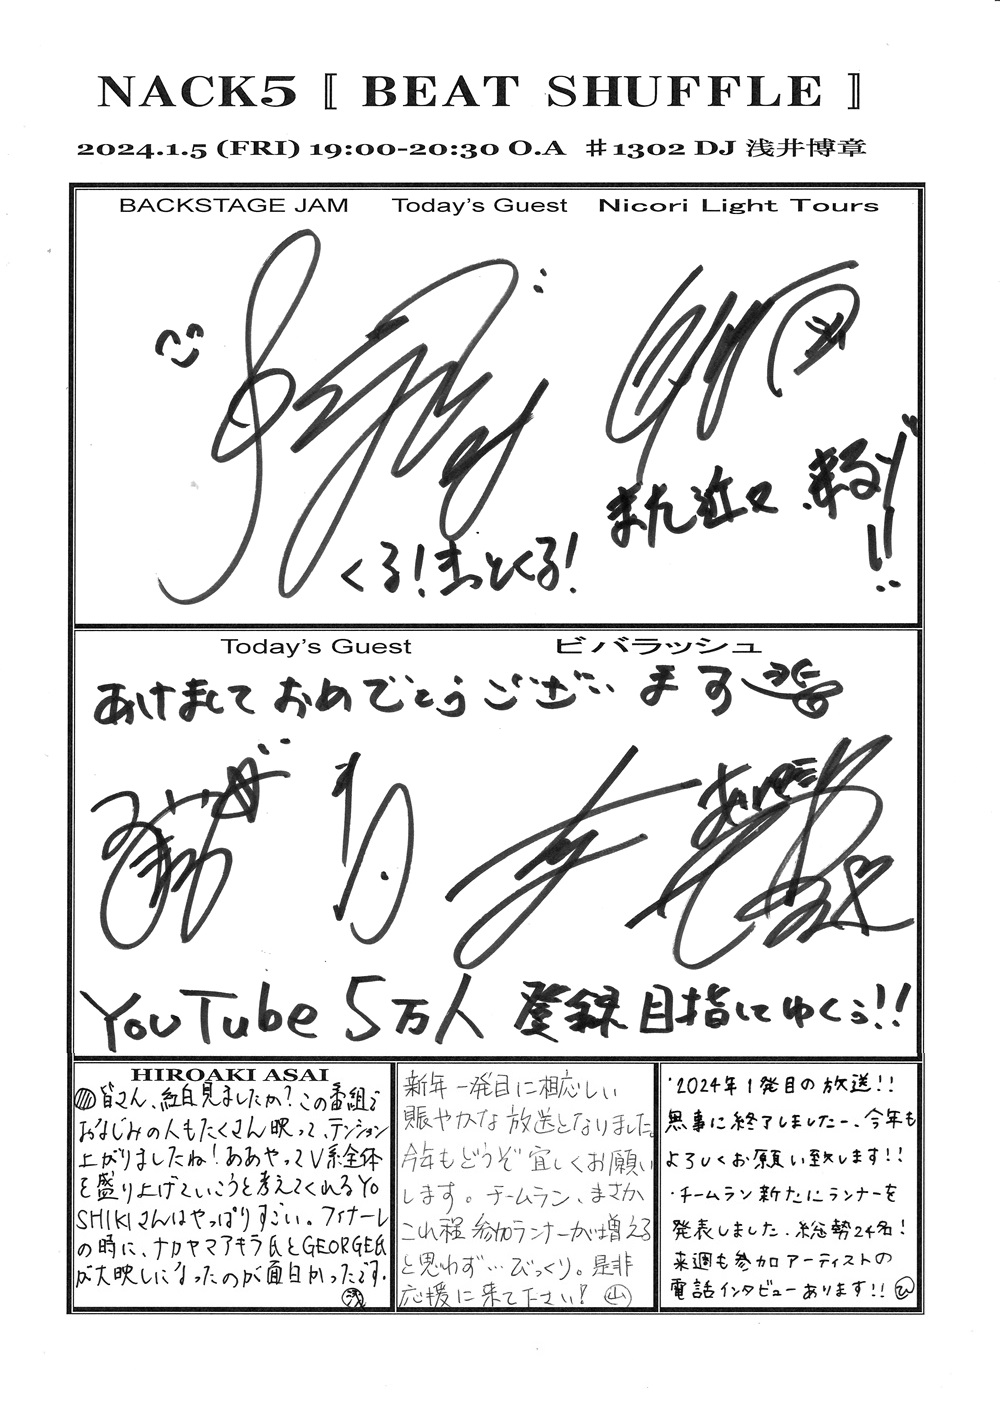 NACK5 〚 BEAT SHUFFLE 〛
2024.1.5 (FRI) 19:00-20:30 O.A ♯1302 DJ 浅井博章
BACKSTAGE JAM Today's Guest Nicori Light Tours
また近々 来るよ!!
くる!きっとくる!
Today's Guest ビバラッシュ
あけましておめでとうございます
YouTube 5万人 登録 目指してゆくぅ!!
HIROAKI ASAI
皆さん、紅白見ましたか?この番組で
おなじみの人もたくさん映って、テンション
上がりましたね!ああやってV系全体
を盛り上げていこうと考えてくれるYO
SHIKIさんはやっぱりすごい。フィナーレ
の時に、ナカヤマアキラ氏とGEORGE氏
が大映しになったのが面白かったです。
浅
新年一発目に相応しい
賑やかな放送となりました。
今年もどうぞ宜しくお願い
します。チームラン、まさか
これ程参加ランナーが増える
と思わず…びっくり。是非
応援に来て下さい! 山
・2024年1発目の放送!!
無事に終了しましたー、今年も
よろしくお願い致します!!
・チームラン新たにランナーを
発表しました、総勢24名!
来週も参加アーティストの
電話インタビューあります!! ひ